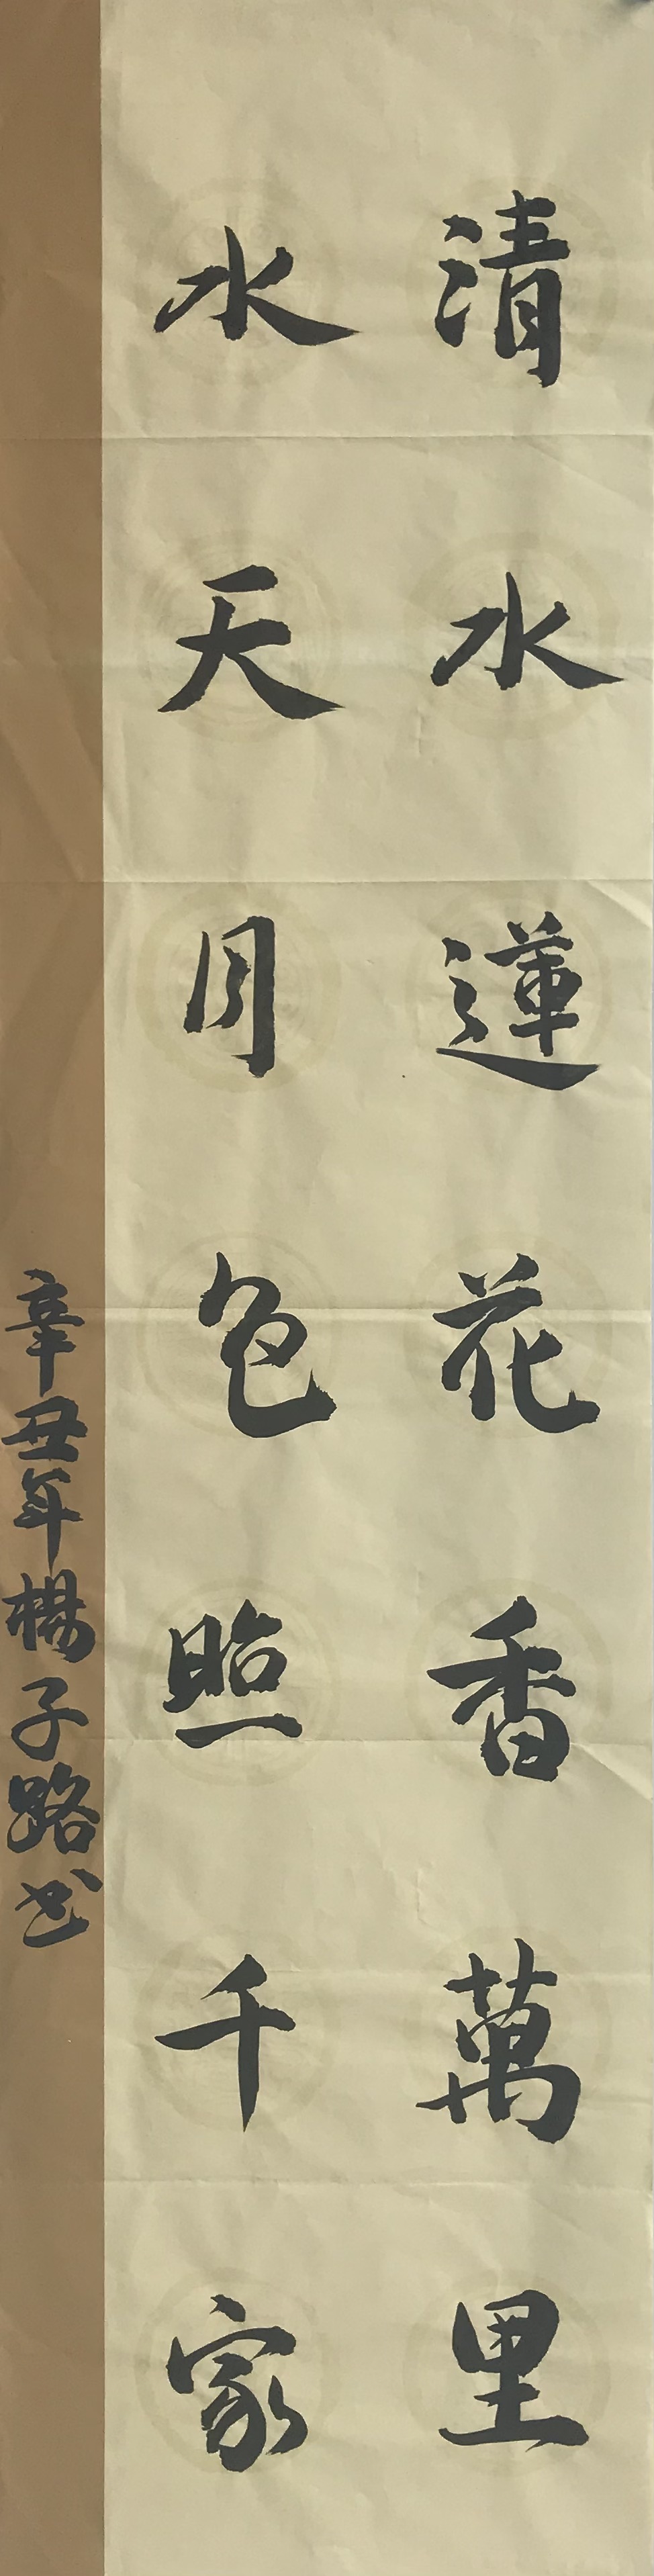 清水蓮花香萬里
水天月色照千家
辛丑年楊子路书